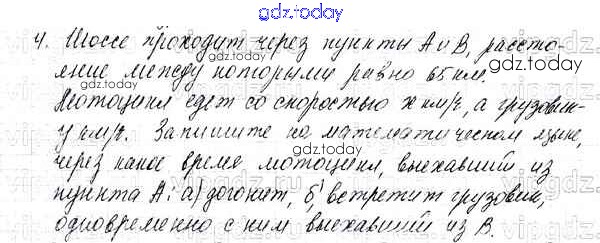 gdz.today
4. Шоссе проходит через пункты А и В, рассто-
яние между которыми равно 65 км.
Мотоцикл едет со скоростью x км/ч, а грузовик-
y км/ч. Запишите на математическом языке,
через какое время мотоцикл, выехавший из
пункта А: а) догонит, б) встретит грузовик,
одновременно с ним выехавший из В.
gdz.today